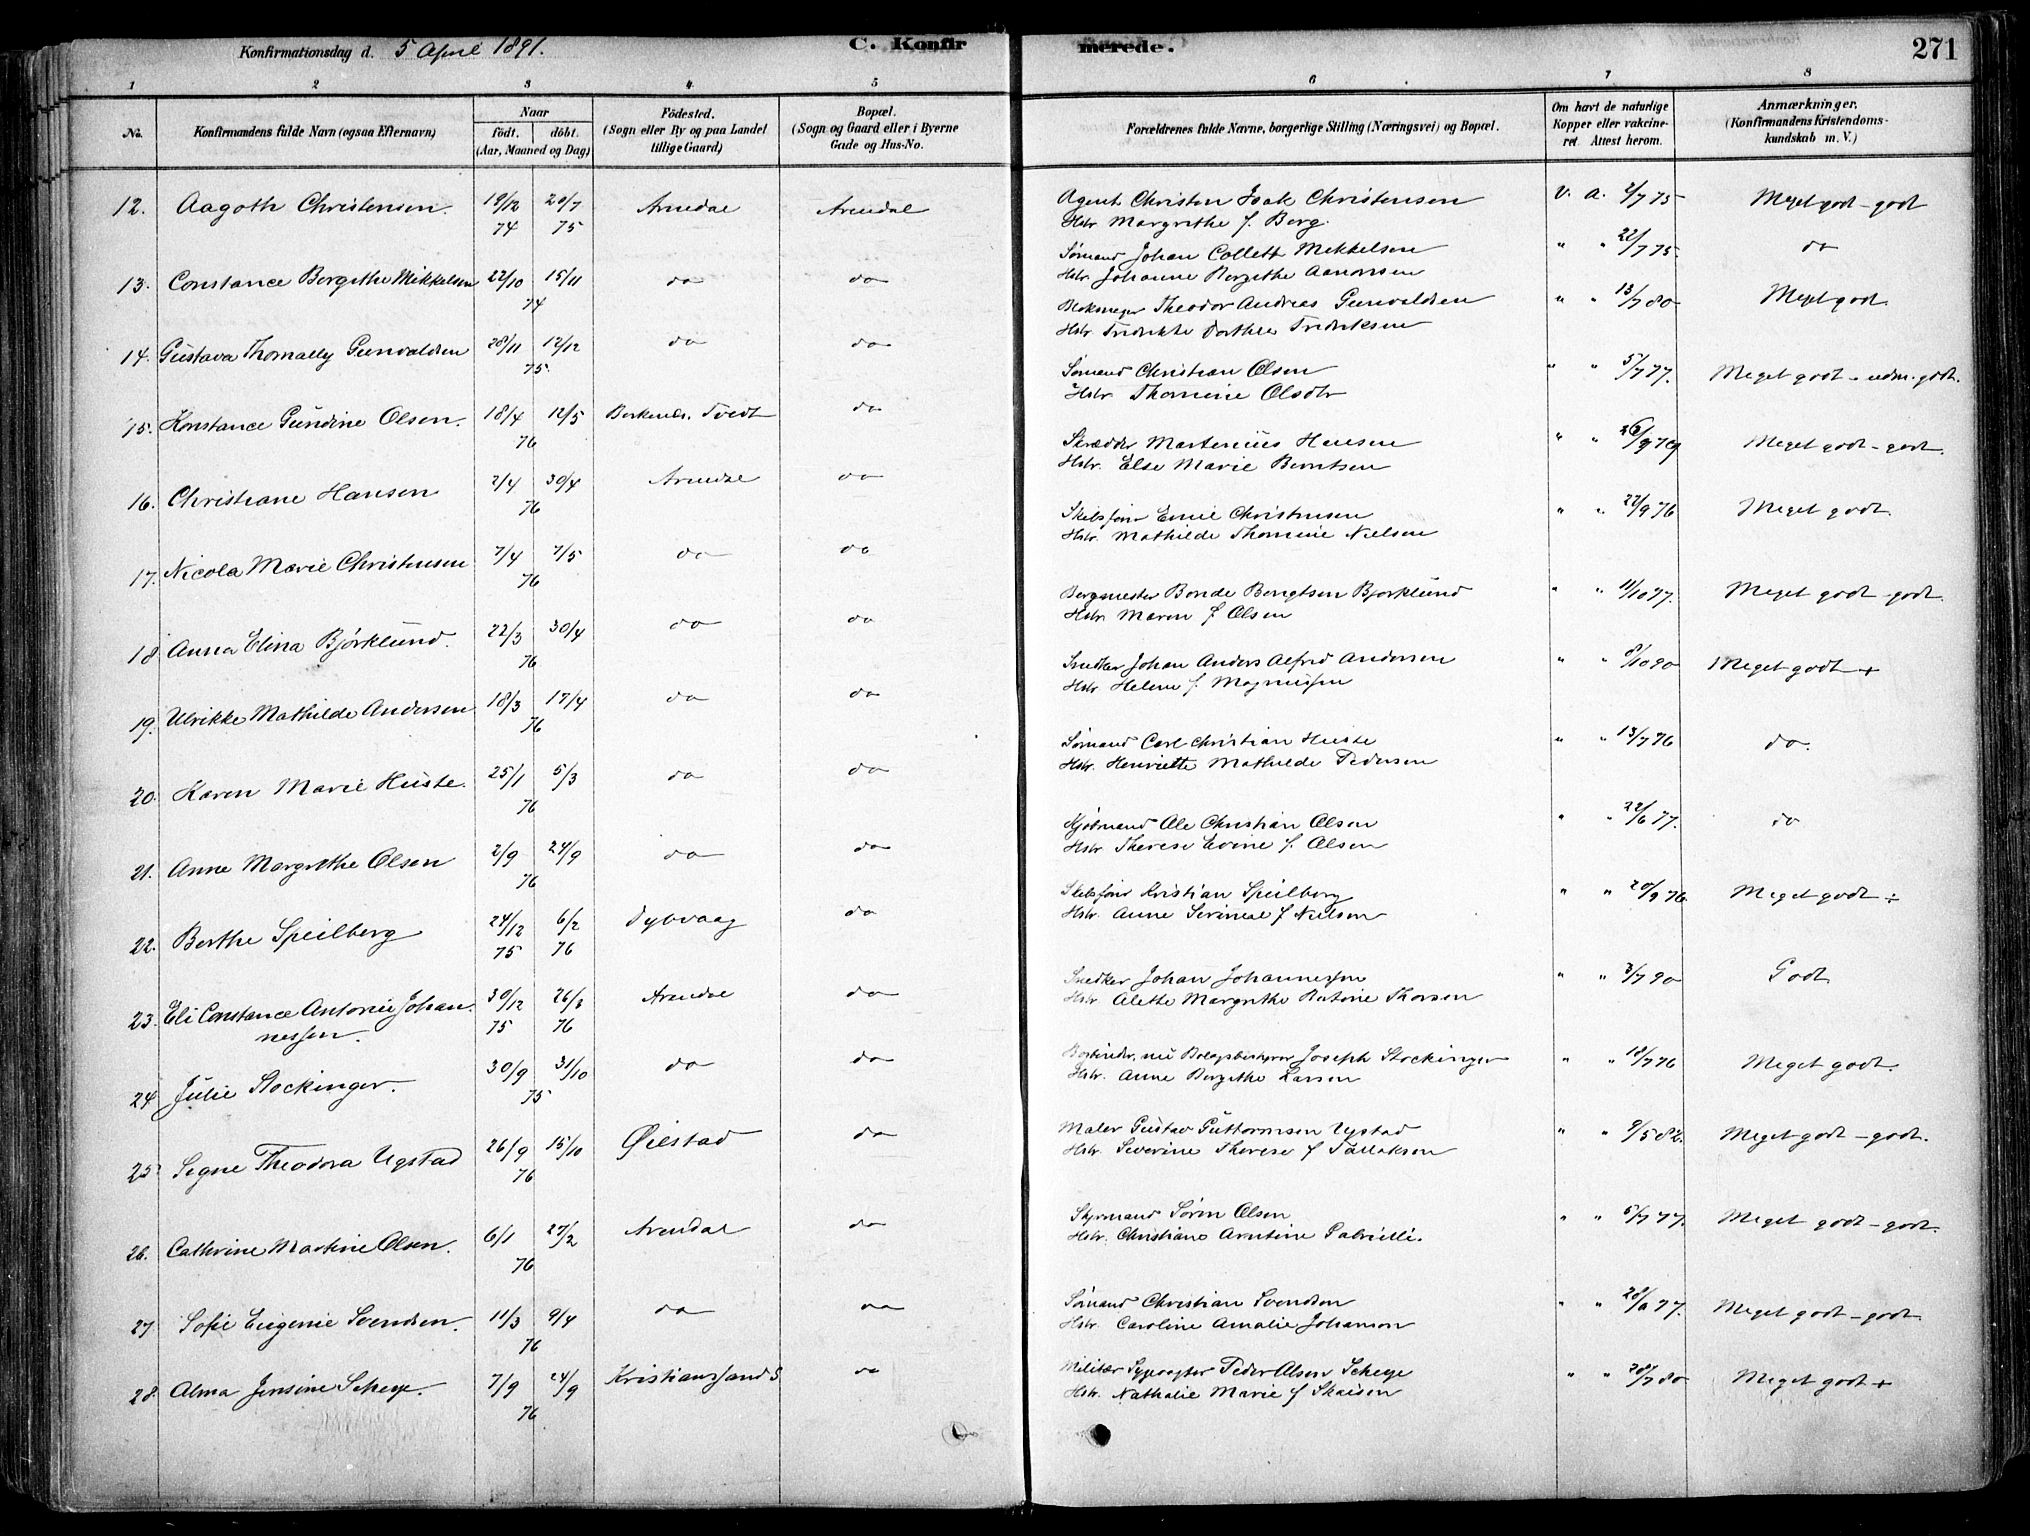 Konfirmationsdag d. 5 April 1891.
C. Konfirmerede.
271
1 2 3 4 5 6 7 8
No.
Konfirmandens fulde Navn (ogsaa Efternavn)
Naar
födt. döbt.
(Aar, Maaned og Dag)
Födested.
(Sogn eller By og paa Landet
tillige Gaard)
Bopæl.
(Sogn og Gaard eller i Byerne
Gade og Hus-No.
Forældrenes fulde Navne, borgerlige Stilling (Næringsvei) og Bopæl.
Om havt de naturlige
Kopper eller vakcine-
ret. Attest herom.
Anmærkninger.
(Konfirmandens Kristendoms-
kundskab m. V.)
12. Aagoth Christensen. 19/12 74 20/7 75 Arendal Arendal Agent Christen Isak Christensen v. a. 2/7 75 Meget godt - godt
Hstr Margrethe f. Berg.
13. Constance Bergithe Mikkelsen 22/10 15/11 74 do do Sømand Johan Collett Mikkelsen " " 22/7 75. do
Hstr. Johanne Bergithe Aanonsen
14. Gustava Thomally Gunvaldsen 28/11 12/12 75. do do Blokmager Theodor Andreas Gunvaldsen " " 13/7 80 Meget godt.
Hstr Fredrikke Dorthea Fredriksen
15. Konstance Gundine Olsen. 18/4 12/5 76 Barkenæs. Tvedt do Sømand Christian Olsen " " 5/7 77. Meget godt - udm. godt.
Hstr Thomine Olsdtr
16. Christiane Hansen 2/4 30/4 76 Arendal do Skrædder Martenius Hansen " " 26/9 79 Meget godt - godt.
Hstr. Else Marie Berntsen
17. Nicola Marie Christensen 7/4 7/5 76 do do Skibsfører Emil Christensen " " 22/9 76 Meget godt.
Hstr. Mathilde Thomine Nielsen
18. Anna Elina Björklund. 22/3 30/4 76 do do Bergmester Bonde Bengtsen Bjorklund " " 11/10 77. Meget godt - godt.
Hstr. Maren f. Olsen
19. Ulrikke Mathilde Andersen 18/3 17/4 76 do do Snedker Johan Anders Alfred Andersen " " 8/10 90 Meget godt +
Hstr Helene f. Magnussen
20. Karen Marie Huste. 25/1 5/3 76 do do Sømand Carl Christian Huste " " 13/7 76 do.
Hstr. Henriette Mathilde Pedersen
21. Anne Margrethe Olsen 2/9 24/9 76 do do Kjøbmand Ole Christian Olsen " " 22/6 77. do
Hstr Therese Evine f. Olsen
22. Berthe Speilberg 24/12 75 6/2 76 Dybvaag do Skibsfører Kristian Speilberg " " 20/9 76. Meget godt ÷
Hstr. Anne Sevineae f Nielsen
23. Eli Constance Antonie Johan- 30/12 75 26/3 76 Arendal do Snedker Johan Johannessen " " 3/7 90 Godt
nessen. Hstr Alethe Margrethe Thorsen
24 Julie Stockinger. 30/9 31/10 75 do do nu Joseph Stockinger " " 18/7 76 Meget godt.
Hstr. Anne Bergithe Larsen
25. Signe Theodora Ugstad 26/9 15/10 76 Øiestad do Maler Gustav Guttormsen Ugstad " " 9/5 82. Meget godt - godt.
Hstr. Severine Therese f Tallaksen
26. Cathrine Martine Olsen. 6/1 27/2 76 Arendal do Styrmand Søren Olsen " " 5/7 77. Meget godt - godt.
Hstr. Christiane Arntine Gabrielli.
27 Sofie Eugenie Svendsen. 11/3 9/4 76 do do Sømand Christian Svendsen " " Meget godt - godt.
Hstr. Caroline Amalie Johanson
28. Alma Jensine Scheye. 7/9 24/9 76 Kristianssand S do Militær Sygevogter Peder Olsen Scheye " " 28/7 80 Meget godt +
Hstr. Nathalie Marie f